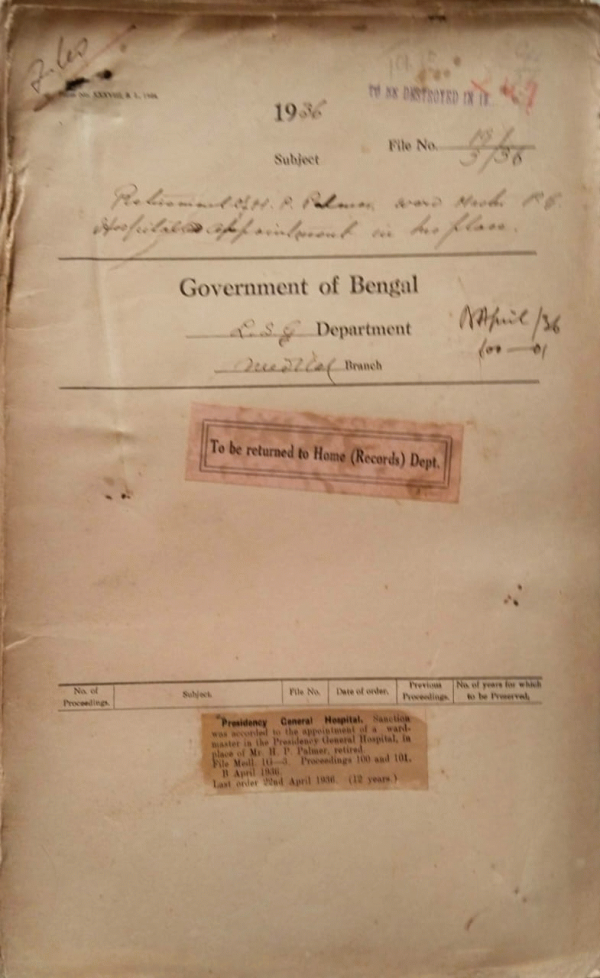 Files
TO BE DESTROYED IN
1936
File No. 1G/
3/36
Subject
Retirement of H. P. Palmer, ward Master P. G.
Hospital & appointment in his place.
Government of Bengal
L. S. G Department
B April/36
100—01
Medical Branch
To be returned to Home (Records) Dept.
No. of
Proceedings.
Subject.
File No.
Date of order.
Previous
Proceedings.
No. of years for which
to be Preserved.
Presidency General Hospital. Sanction
was accorded to the appointment of a ward-
master in the Presidency General Hospital, in
place of Mr. H. P. Palmer, retired.
File Medl. 1G—3. Proceedings 100 and 101,
B April 1936.
Last order 22nd April 1936. (12 years.)